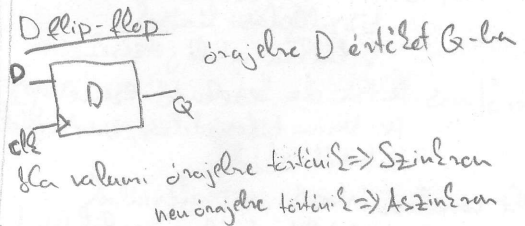 D flip-flop
órajelre D értékét Q-ba
D
D
Q
clk
Ha valami órajelre történik => Szinkron
nem órajelre történik => Aszinkron